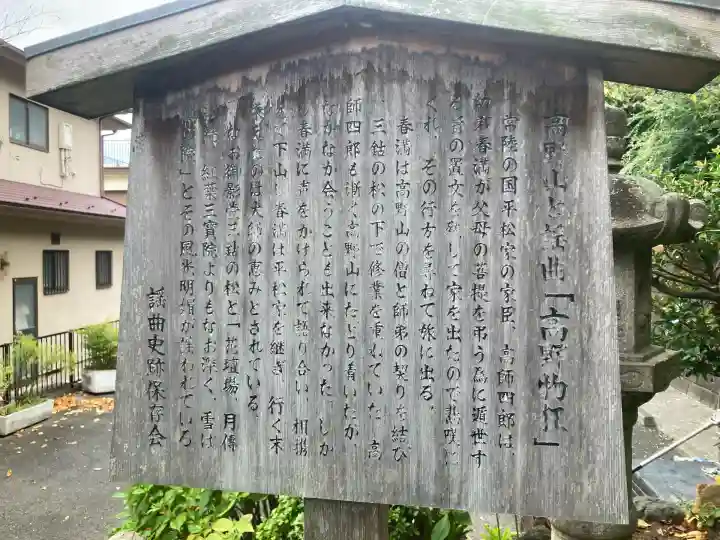 高野山と謡曲「高野物狂」
常陸の国平松家の家臣、高師四郎は、
春満が父母の菩提を弔う為に遁世す
る旨の置文を残して家を出たので悲嘆に
くれ、その行方を尋ねて旅に出る。
春満は高野山の僧と師弟の契りを結び
、三鈷の松の下で修業を重ねていた。高
師四郎も漸く高野山にたどり着いたが
なかなか会うことも出来なかった。しか
し春満に声をかけられて語り合い、相携
えて下山し、春満は平松家を継ぎ、行く末
のは大師の恵みとされている。
なお御影堂三鈷の松と「花壇場、月傳
紅葉三寶院よりもなお深く、雪は
院」とその風光明媚が謡われている
謡曲史跡保存会